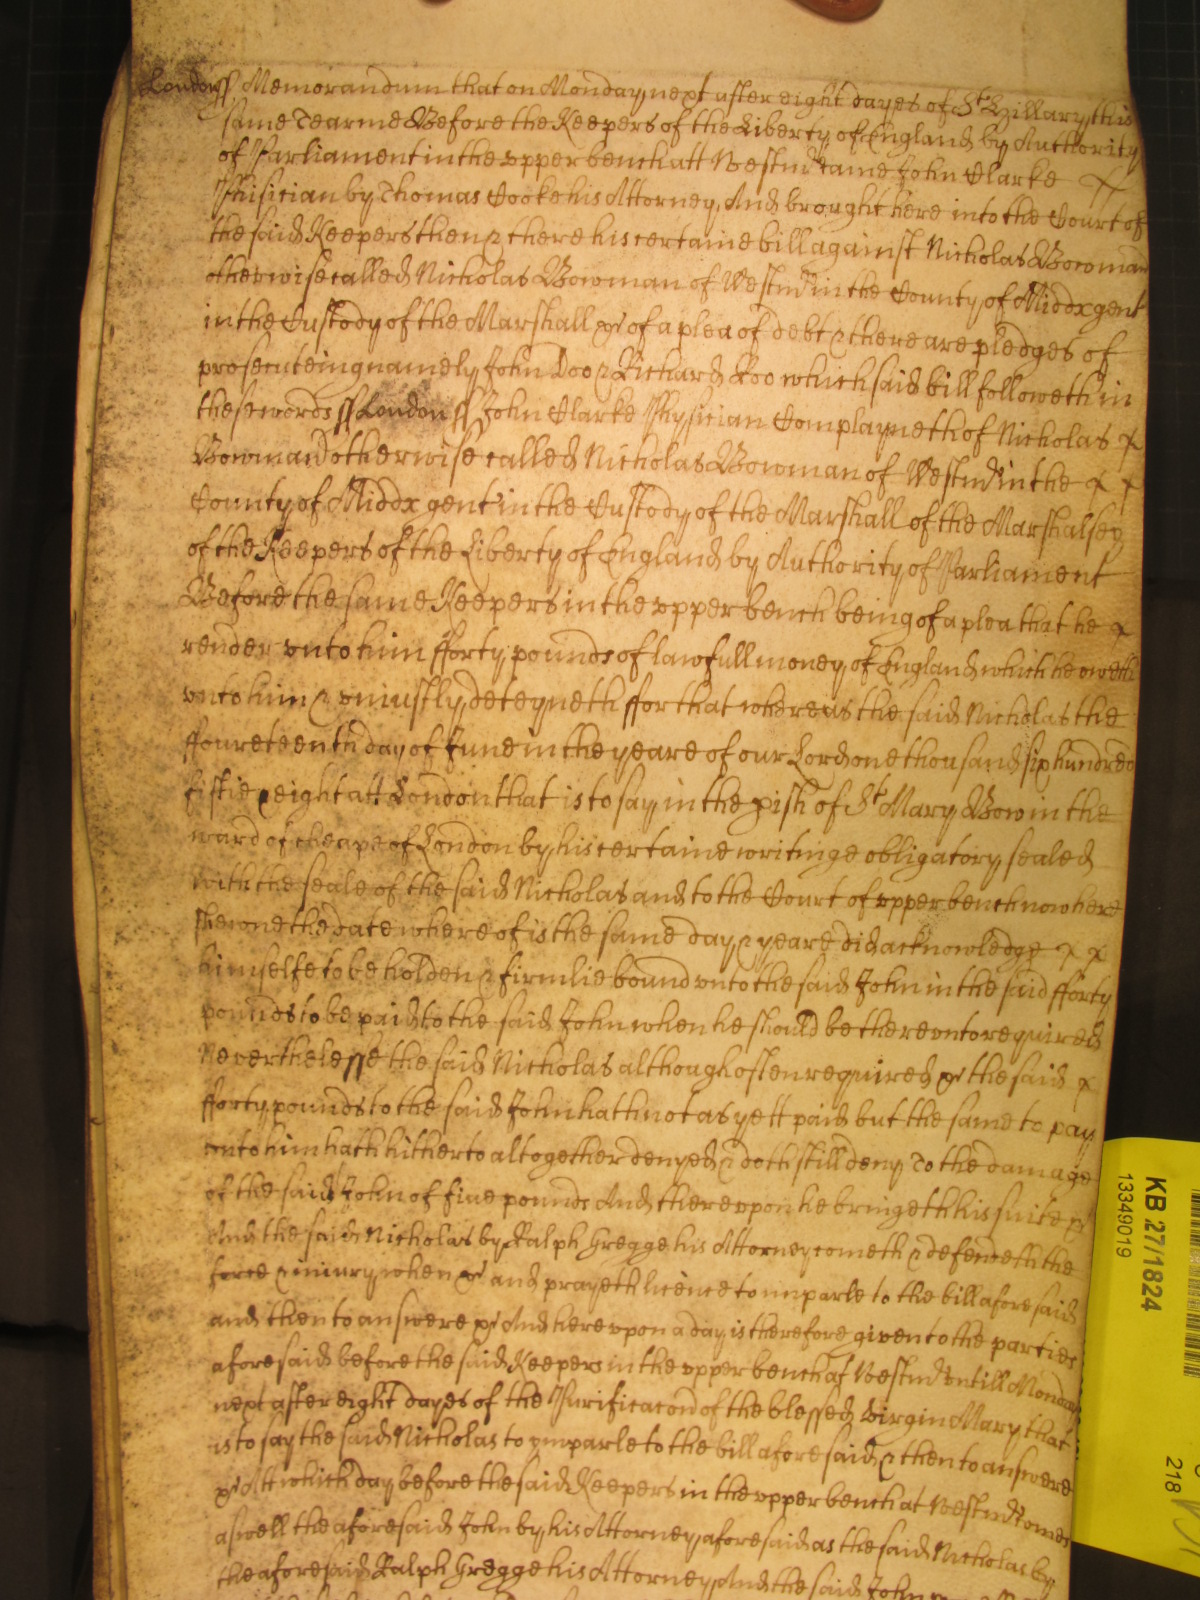 London ss Memorandum that on Monday next after eight dayes of St Hillary this
same Tearme Before the Keepers of the Liberty of England by Authority
of Parliament in the vpper bench att Westmr came John Clarke
Phisician by Thomas Cooke his Attorney, And brought here into the Court of
the said Keepers then & there his certaine bill against Nicholas Bowman
otherwise called Nicholas Bowman of Westmr in the County of Middx gent
in the Custody of the Marshall &c of a plea of debt & there are pledges of
prosecuteing namely John Doo & Richard Roo which said bill followeth in
these words ss London ss John Clarke Physician Complayneth of Nicholas
Bowman otherwise called Nicholas Bowman of Westmr in the
County of Middx gent in the Custody of the Marshall of the Marshalsey
of the Keepers of the Liberty of England by Authority of Parliament
Before the same Keepers in the vpper bench being of a plea that he
render vnto him fforty pounds of lawfull money of England which he oweth
vnto him & vniustly deteyneth ffor that whereas the said Nicholas the
ffoureteenth day of June in the yeare of our Lord one thousand six hundred
fiftie & eight att London that is to say in the pish of St Mary Bow in the
ward of cheape of London by his certaine writinge obligatory sealed
with the seale of the said Nicholas and to the Court of vpper bench now here
shewne the date whereof is the same day & yeare did acknowledge
himselfe to be holden & firmlie bound vnto the said John in the said fforty
pounds to be paid to the said John when he should be therevnto required
Neverthelesse the said Nicholas although often required &c the said
fforty pounds to the said John hath not as yett paid but the same to pay
vnto him hath hitherto altogether denyed & doth still deny To the damage
of the said John of fiue pounds And therevpon he bringeth his suite &c
And the said Nicholas by Ralph Gregge his Attorney cometh & defendeth the
force & iniury when &c and prayeth licence to imparle to the bill aforesaid
and then to answere &c And herevpon a day is therefore given to the parties
aforesaid before the said Keepers in the vpper bench at Westmr vntill Monday
next after eight dayes of the Purificacon of the blessed Virgin Mary that
is to say the said Nicholas to imparle to the bill aforesaid & then to answere
&c Att which day before the said Keepers in the vpper bench at Westmr comes
aswell the aforesaid John by his Attorney aforesaid as the said Nicholas by
the aforesaid Ralph Gregge his Attorney And the said John
KB 27/1824
13349019
218